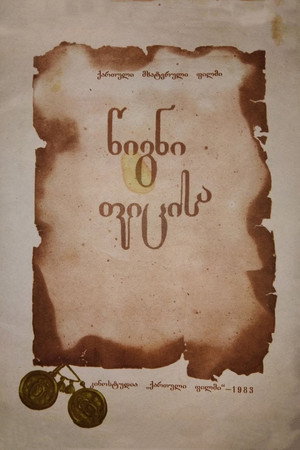 ქართული მხატვრული ფილმი
წიგნი
ფიცისა
კინოსტუდია „ქართული ფილმი“–1983